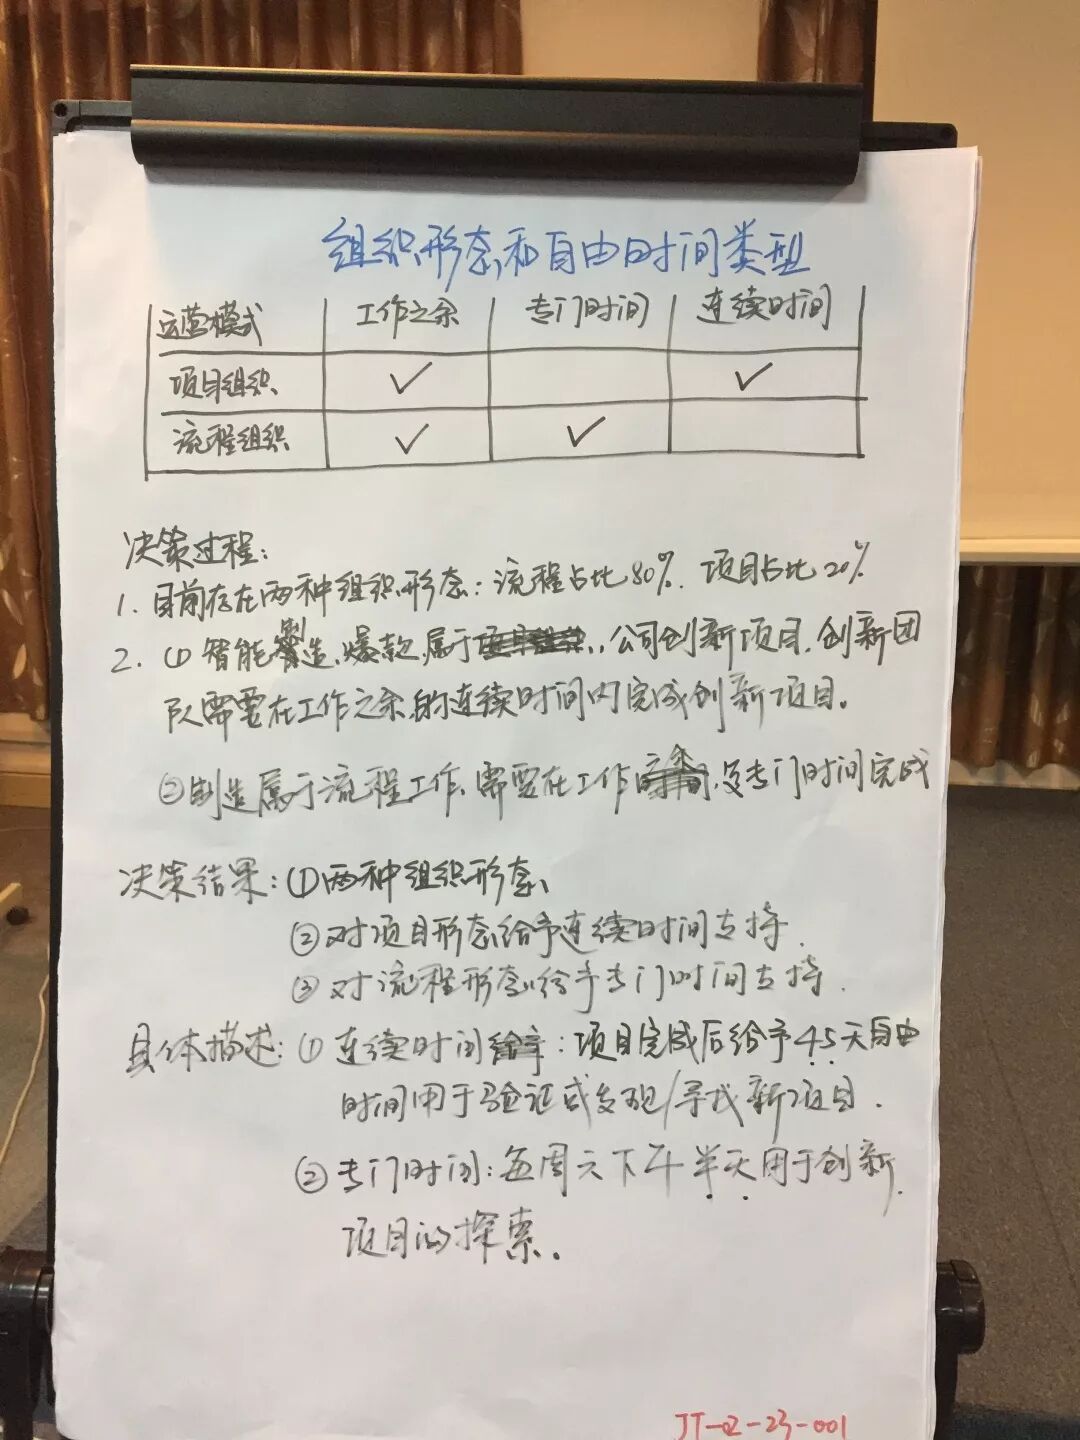 组织形态和自由时间类型
运营模式 工作之余 专门时间 连续时间
项目组织 ✓ ✓
流程组织 ✓ ✓
决策过程:
1. 目前存在两种组织形态:流程占比80%. 项目占比20%
2. ① 智能制造、爆款、属于公司创新项目,创新团
队需要在工作之余的连续时间内完成创新项目。
②制造属于流程工作、需要在工作 及专门时间完成
决策结果:①两种组织形态、
②对项目形态给予连续时间支持.
③对流程形态给予专门时间支持.
具体描述:① 连续时间:项目完成后给予45天自由
时间用于验证或发现/寻找新项目.
② 专门时间:每周六下午半天用于创新
项目的探索.
JT-02-23-001